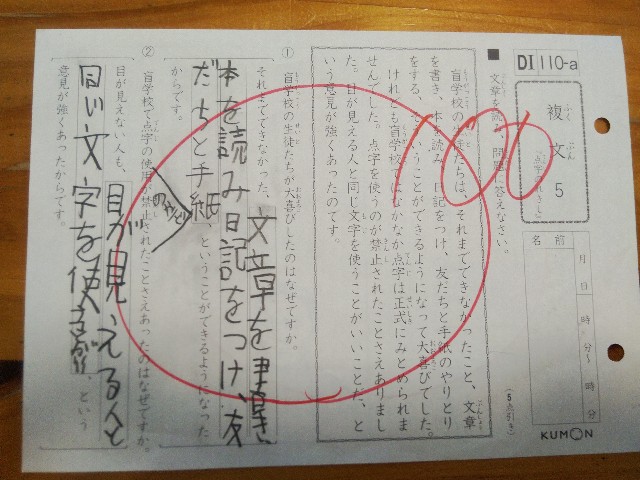 DI 110-a
複文 5
(点字のれきし)
名前
月 日
時 分～ 時 分
(5点引き)
KUMON
■ 文章を読み、問題に答えなさい。
盲学校の生徒たちは、それまでできなかったこと、文章
を書き、本を読み、日記をつけ、友だちと手紙のやりとり
をする、そういうことができるようになって大喜びでした。
けれども盲学校ではなかなか点字は正式にみとめられま
せんでした。点字を使うのが禁止されたことさえありまし
た。目が見える人と同じ文字を使うことがいいことだ、と
いう意見が強くあったのです。
100
① 盲学校の生徒たちが大喜びしたのはなぜですか。
それまでできなかった、文章を書き、
本を読み日記をつけ、友
だちと手紙のやりとり、ということができるようになった
からです。
② 盲学校で点字の使用が禁止されたことさえあったのはなぜですか。
目が見えない人も、目が見える人と
同じ文字を使う、という
意見が強くあったからです。